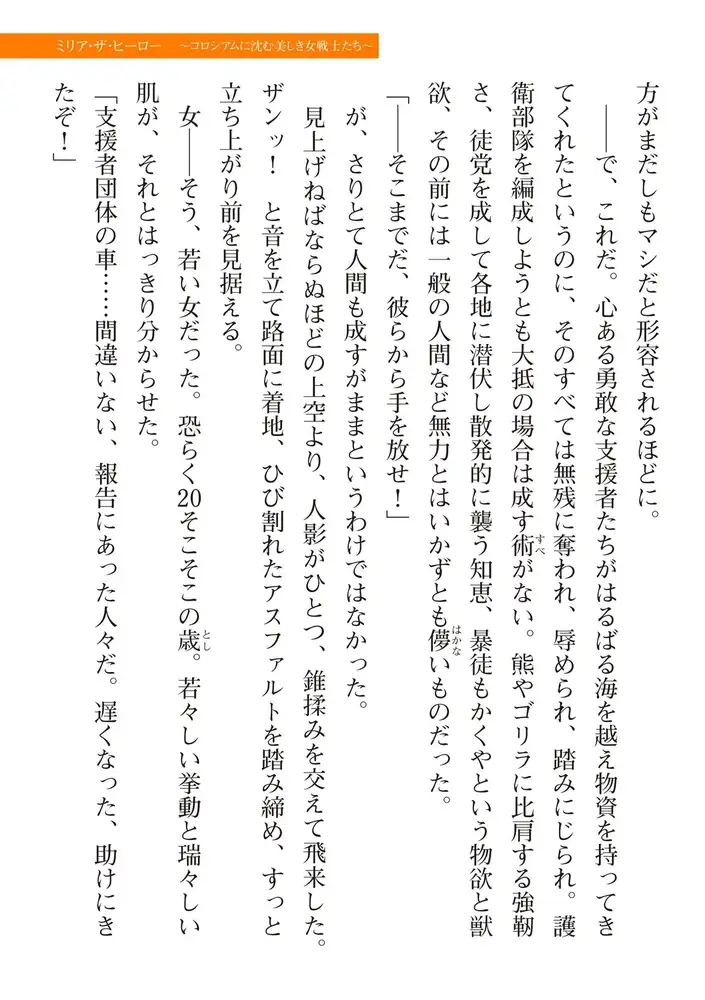 ミリア・ザ・ヒーロー　～コロシアムに沈む美しき女戦士たち～
方がまだしもマシだと形容されるほどに。
――で、これだ。心ある勇敢な支援者たちがはるばる海を越え物資を持ってき
てくれたというのに、そのすべては無残に奪われ、辱められ、踏みにじられ。護
衛部隊を編成しようとも大抵の場合は成す術がない。熊やゴリラに比肩する強靭
すべ
さ、徒党を成して各地に潜伏し散発的に襲う知恵、暴徒もかくやという物欲と獣
欲、その前には一般の人間など無力とはいかずとも儚いものだった。
はかな
「――そこまでだ、彼らから手を放せ！」
が、さりとて人間も成すがままというわけではなかった。
見上げねばならぬほどの上空より、人影がひとつ、錐揉みを交えて飛来した。
ザンッ！　と音を立て路面に着地、ひび割れたアスファルトを踏み締め、すっと
立ち上がり前を見据える。
女――そう、若い女だった。恐らく20そこそこの歳。若々しい挙動と瑞々しい
とし
肌が、それとはっきり分からせた。
「支援者団体の車……間違いない、報告にあった人々だ。遅くなった、助けにき
たぞ！」